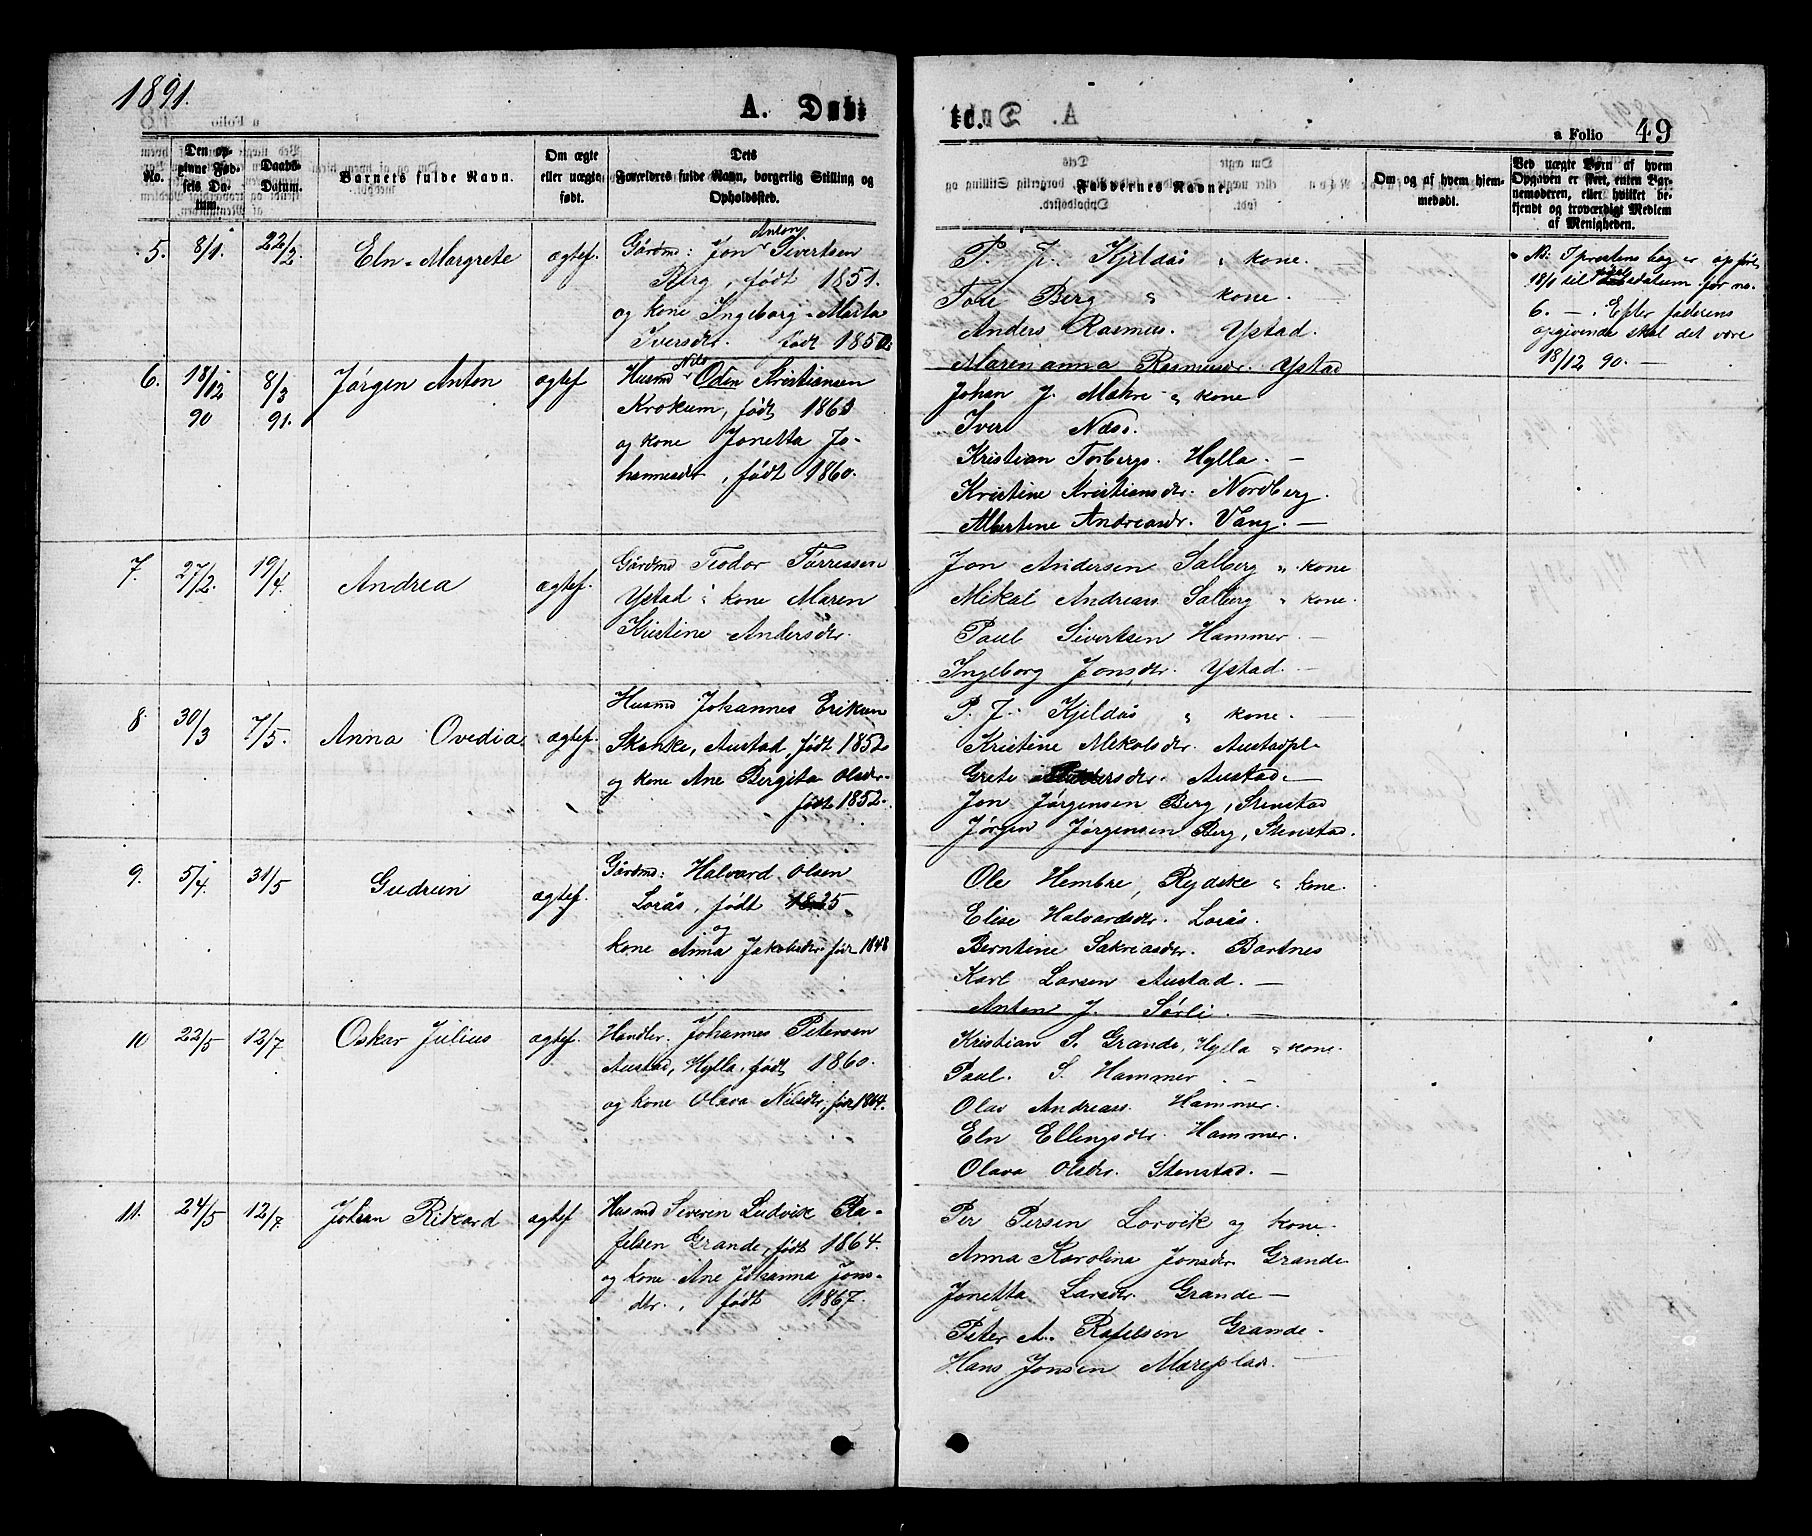 1891.
A. Døbte.
a Folio 49
No.
Den opgivne Fødsels Datum.
Daabs-Datum.
Barnets fulde Navn.
Om ægte eller uægte født.
Dets Forældres fulde Navn, borgerlig Stilling og Opholdssted.
Faddernes Navne.
Om og af hvem hjemmedøbt.
Ved uægte Børn af hvem Opgaven er skeet, enten Barnemoderen, eller hvilket bekjendt og troværdigt Medlem af Menigheden.
5. 8/1. 22/2. Eln-Margrete ægtef.
Gårdmd: Jon Anton Sivertsen
Berg, født 1851.
og kone Ingeborg-Marta
Iversdtr. født 1850.
P. J. Kjeldås " kone.
Tore Berg " kone.
Anders Rasmus. Ystad.
Marenanna Rasmusdr. Ystad
Nb: I prestens bog er opført
18/1 til fødsedatum for no.
6. — . Efter faderens
opgivende skal det være
18/12 90. —
6. 18/12 90 8/3 91. Jørgen Anton ægtef
Husmd Nils Oden Kristiansen
Krokum, født 1863
og kone Jonetta Jo-
hannesdtr, født 1860.
Johan J. Mahre " kone
Iver Næss.
Kristian Torbergs. Hylla. —
Kristine Kristiansdtr: Nordberg.
Martine Andreasdr. Vang. —
7. 27/2. 19/4. Andrea ægtef.
Gårdmd Teodor Tørressen
Ystad " kone Maren
Kristine Andersdtr.
Jon Andersen Salberg " kone
Mikal Andreas. Salberg " kone.
Paul Sivertsen Hammer. —
Ingeborg Jonsdtr. Ystad. —
8. 30/3 7/5. Anna Ovedia. ægtef.
Husmd Johannes Eriksen
Skanke, Austad, født 1852.
og kone Ane Bergita Olsdr.
født 1852.
P. J. Kjeldås " kone. —
Kristine Mikalsdr. Austadpl.
Grete Andersdtr. Austad. —
Jon Jørgensen Berg, Stenstad
Jørgen Jørgensen Berg, Stenstad.
9. 5/4. 31/5 Gudrun ægtef.
Gårdmd: Halvard Olsen
Lorås, født 1835.
og
kone Anna Jakobsdtr. før 1848
Ole Hembre, Rydske " kone.
Elise Halvardsdtr. Lorås.
Berntine Sakriasdtr. Bartnes
Karl Larsen Austad. —
Anton J. Sørli. —
10 22/5 12/7 Oskar Julius ægtef.
Handler. Johannes Petersen
Austad, Hylla, født 1860.
og kone Olava Nilsdtr, før 1864.
Kristian S. Grande, Hylla " kone.
Paul. S. Hammer. —
Olav Andreas. Hammer.
Eln Ellingsdtr. Hammer.
Olava Olsdtr. Stenstad. —
11. 24/5 12/7. Johan Rikard ægtef
Husmd Severen Ludvik Ra-
felsen Grande, født 1864.
og kone Ane Johanna Jons-
dtr., født 1867.
Per Persen Lorvik og kone.
Anna Karolina Jonsdr Grande
Jonetta Larsdtr. Grande —
Peter A. Rafelsen Grande.
Hans Jonsen Mæreplads. —